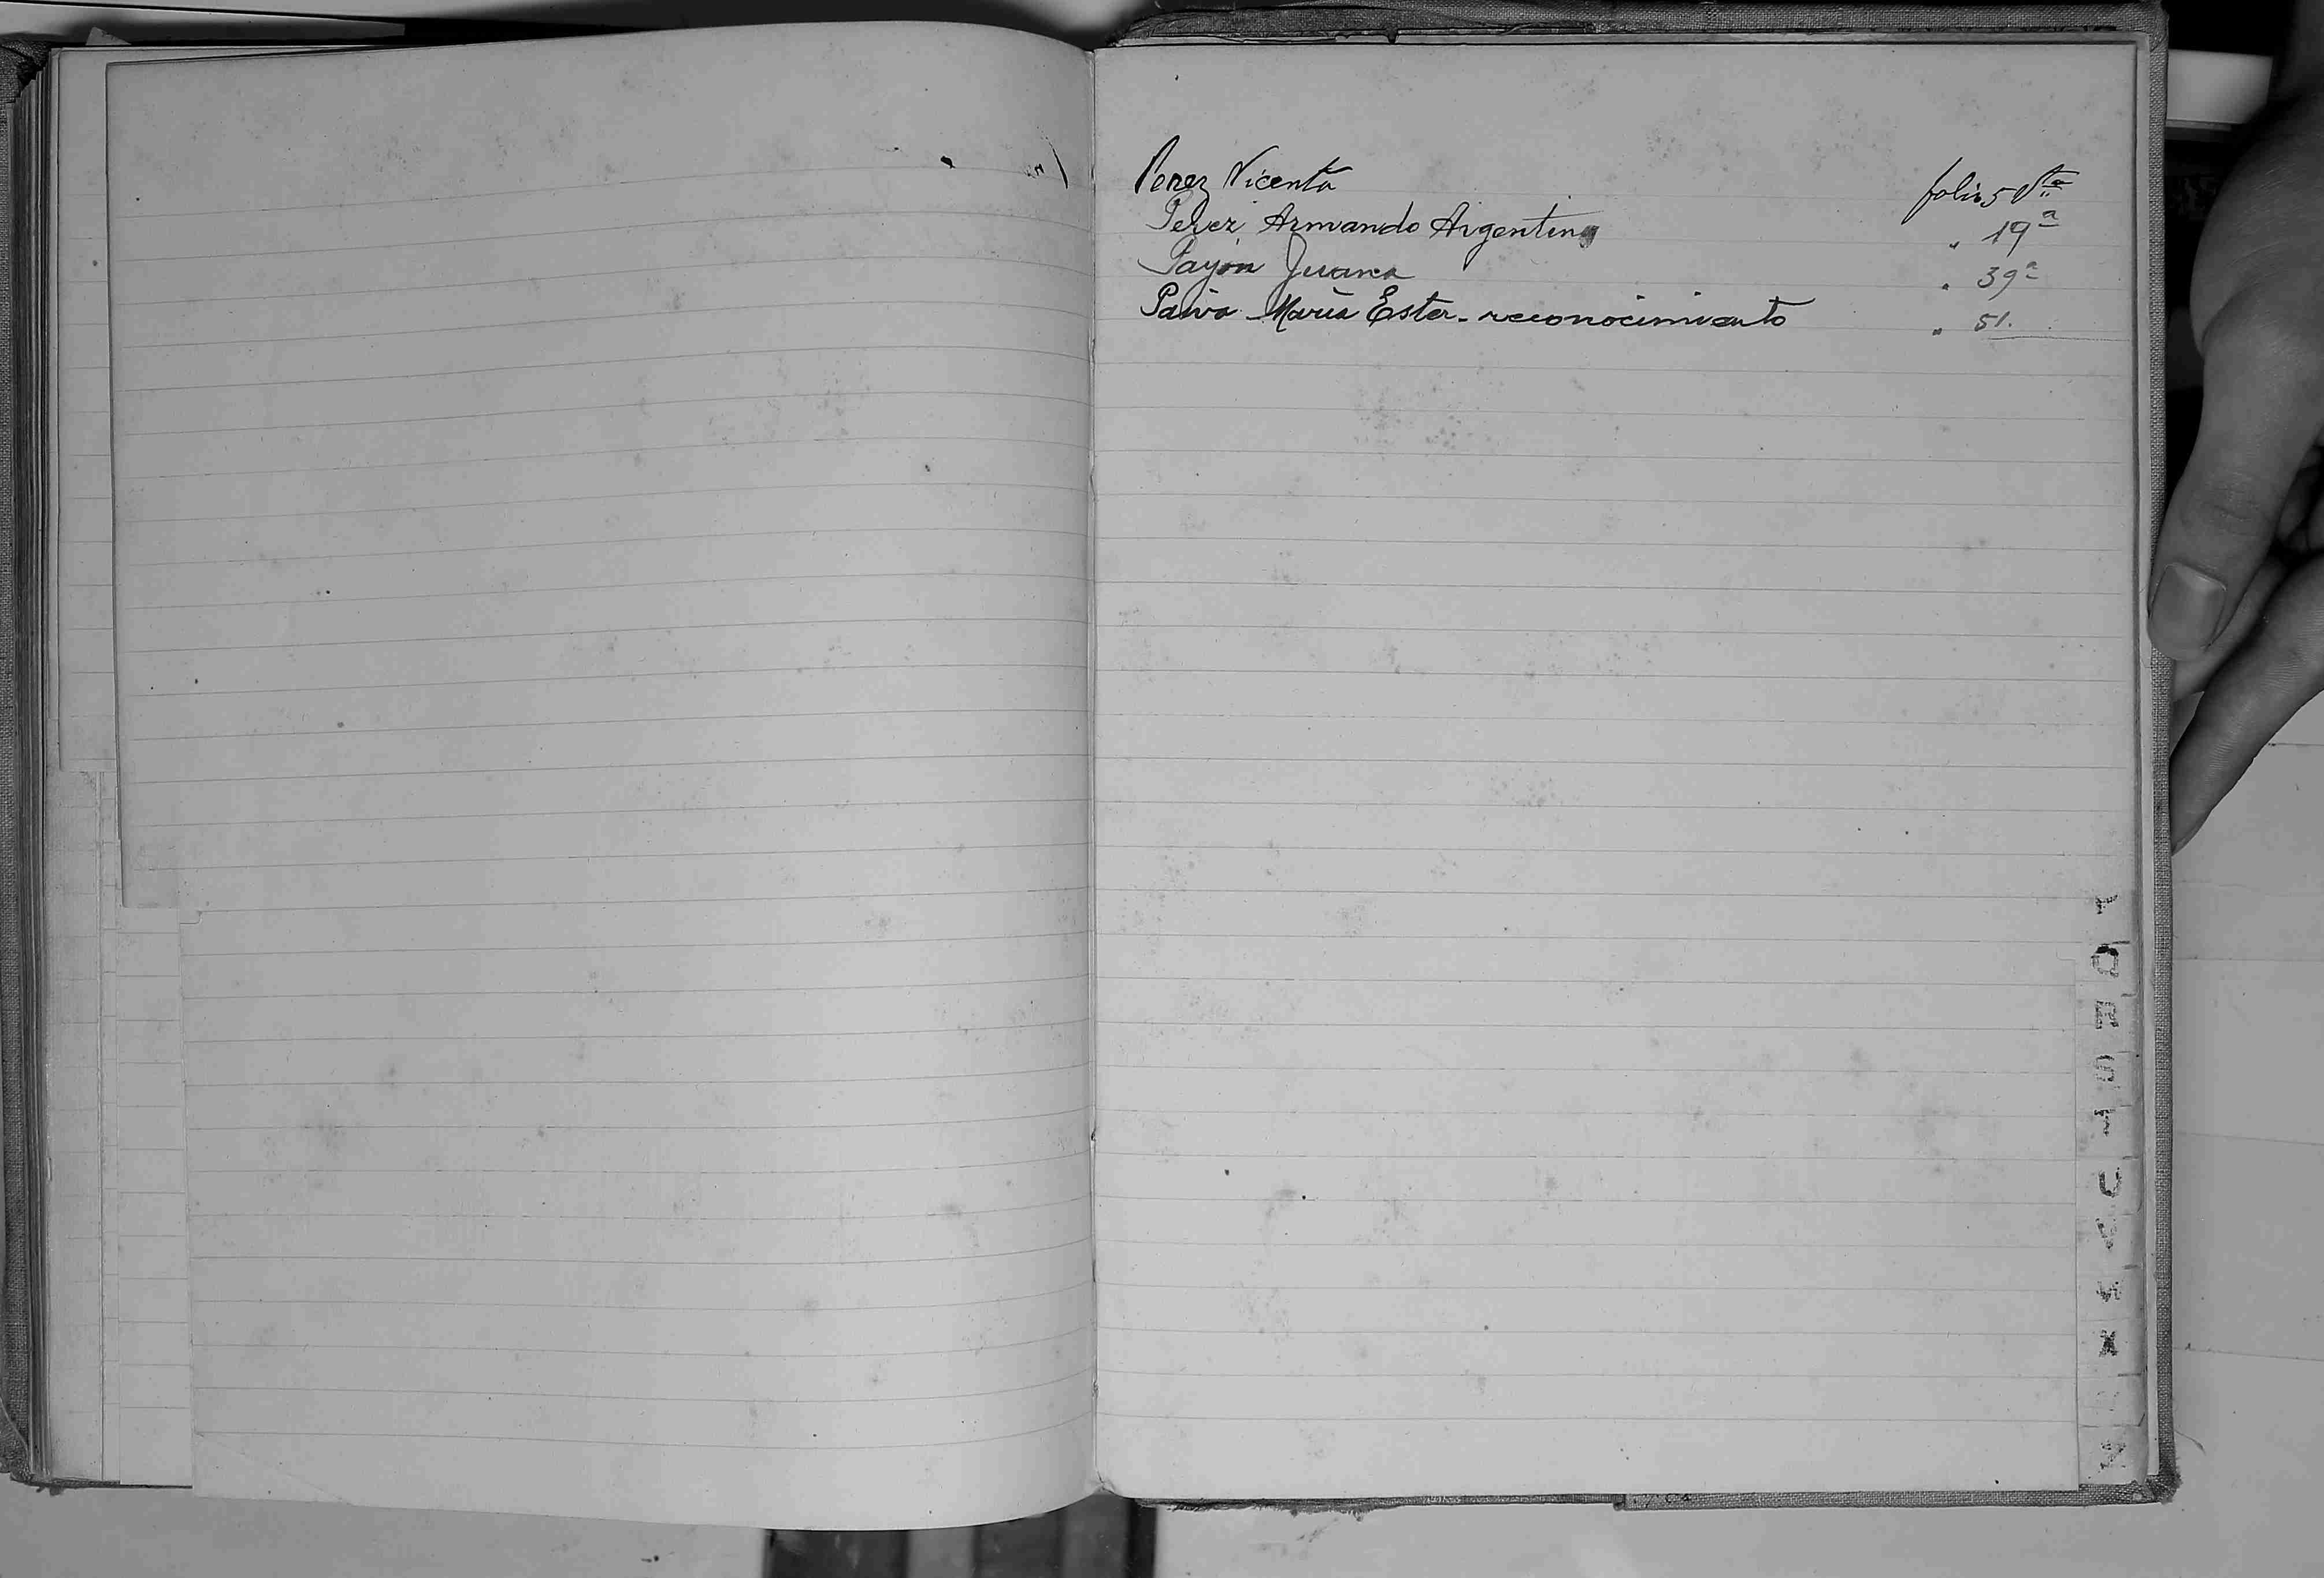 Perez Vicenta folio 5 Vta
Perez Armando Argentino " 19a
Payon Juana " 39a
Paiva María Ester - reconocimiento " 51.
P
Q
R
S
T
U
V
X